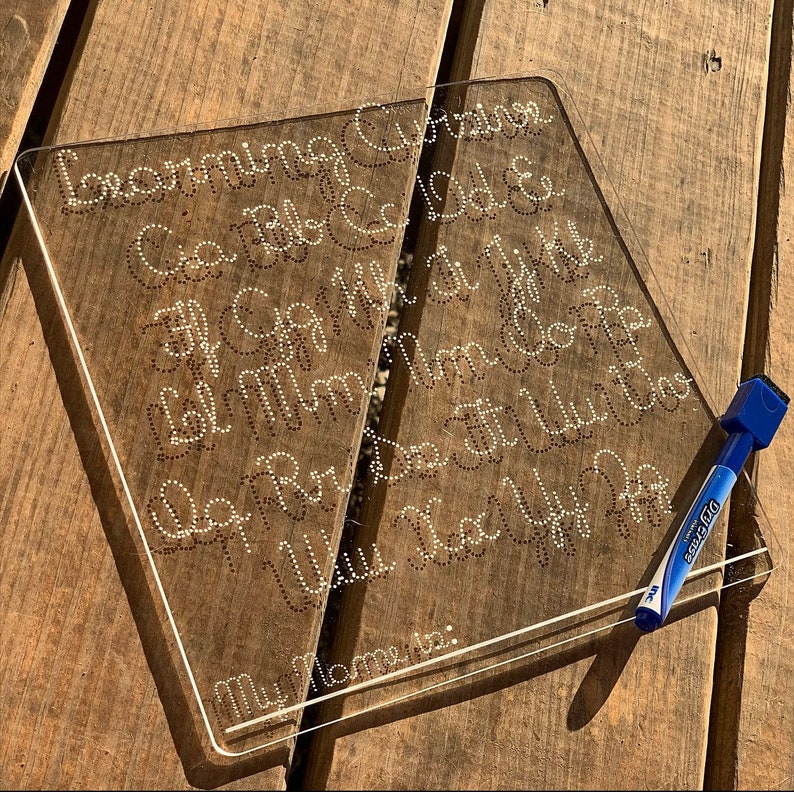 Learning Cursive
Aa Bb Cc Dd Ee
Ff Gg Hh Ii Jj Kk
Ll Mm Nn Oo Pp
Qq Rr Ss Tt Uu Vv
Ww Xx Yy Zz
My Name is:
Dry Erase
inc